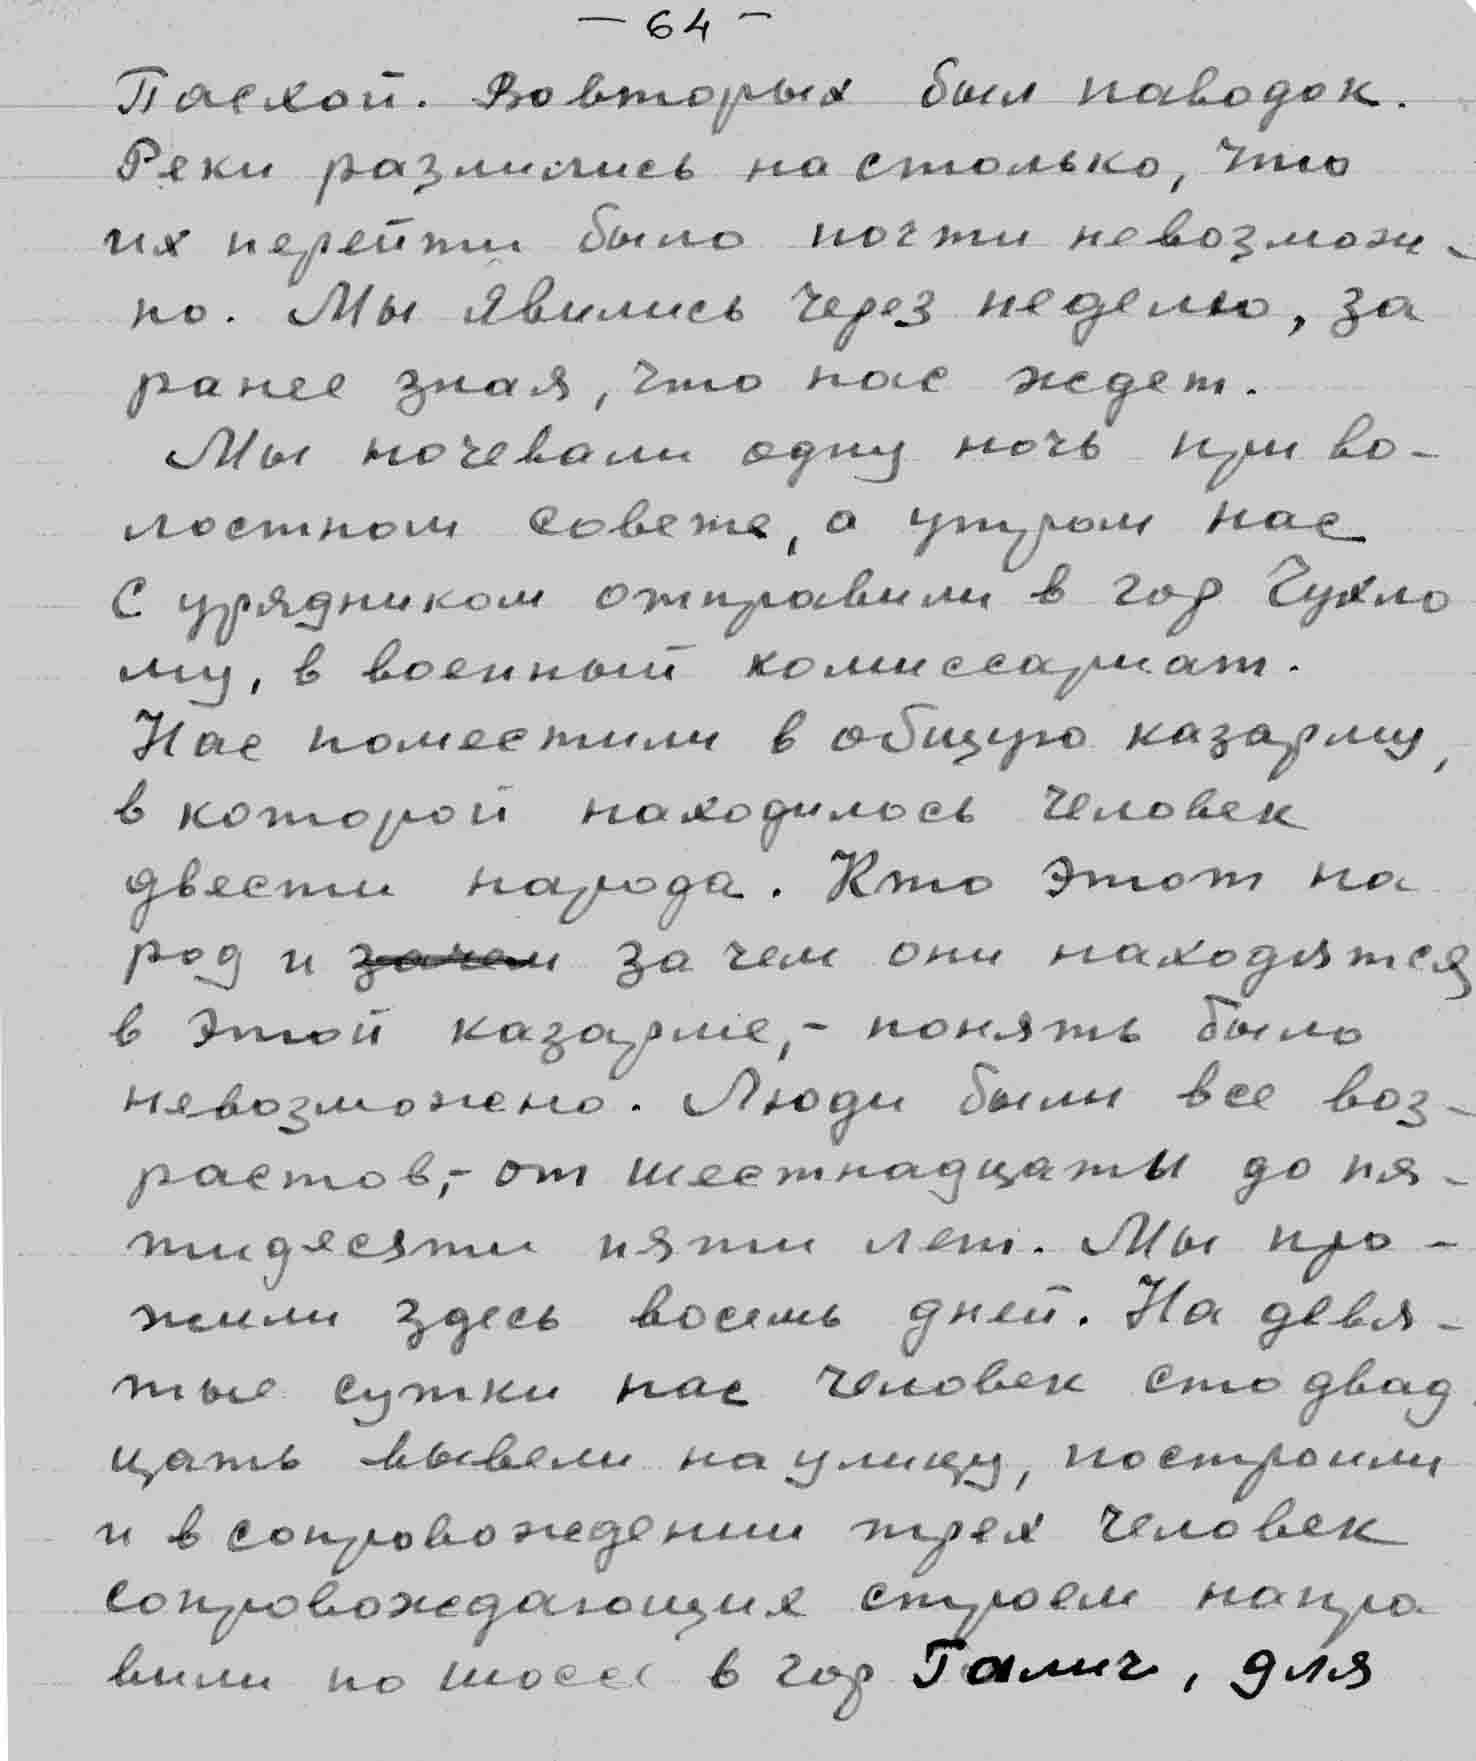 - 64 -
Пасхой. Вовторых был паводок.
Реки разлились на столько, что
их перейти было почти невозмож-
но. Мы явились через неделю, за
ранее зная, что нас ждет.
Мы ночевали одну ночь при во-
лостном совете, а утром нас
с урядником отправили в гор Чухло
му, в военный комиссариат.
Нас поместили в общую казарму,
в которой находилось человек
двести народа. Кто этот на
род и зачем за чем они находятся
в этой казарме,- понять было
невозможено. Люди были все воз-
растов,- от шестнадцаты до пя-
тидесяти пяти лет. Мы про-
жили здесь восемь дней. На девя-
тые сутки нас человек сто двад
цать вывели на улицу, построили
и в сопровождении трех человек
сопровождающих строем напра
вили по шоссе в гор Галич, для